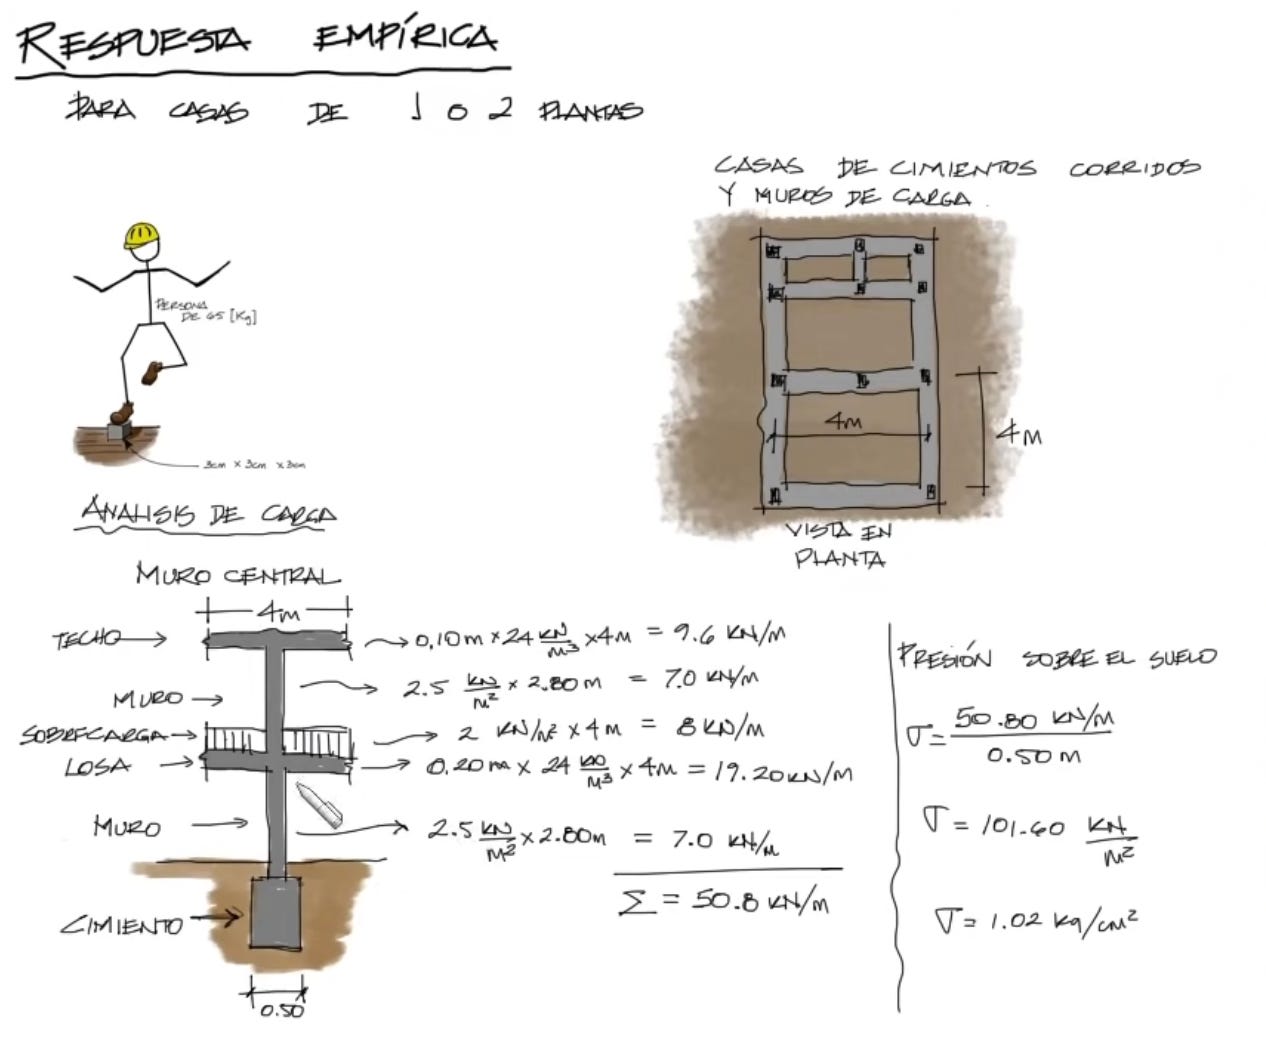 RESPUESTA EMPÍRICA
PARA CASAS DE 1 O 2 PLANTAS
CASAS DE CIMIENTOS CORRIDOS
Y MUROS DE CARGA
PERSONA
DE 65 [Kg]
3cm x 3cm x 3cm
4m
4m
VISTA EN
PLANTA
ANALISIS DE CARGA
MURO CENTRAL
4m
TECHO → 0.10m x 24 kN/m³ x 4m = 9.6 kN/m
MURO → 2.5 kN/m² x 2.80m = 7.0 kN/m
SOBRECARGA → 2 kN/m² x 4m = 8 kN/m
LOSA → 0.20m x 24 kN/m³ x 4m = 19.20 kN/m
MURO → 2.5 kN/m² x 2.80m = 7.0 kN/m
Σ = 50.8 kN/m
CIMIENTO →
0.50
PRESIÓN SOBRE EL SUELO
σ = 50.80 kN/m / 0.50 m
σ = 101.60 kN/m²
σ = 1.02 kg/cm²